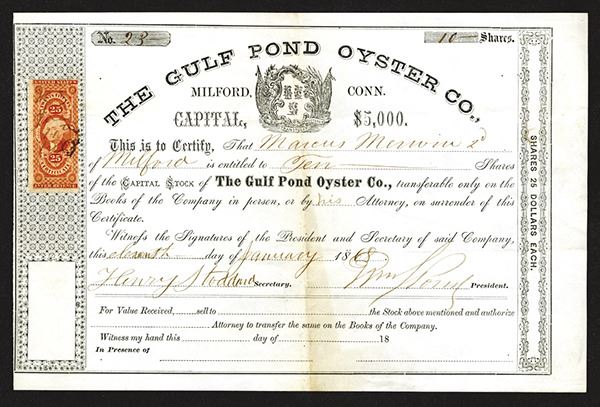 No. 23
10 Shares.
THE GULF POND OYSTER CO.,
MILFORD, CONN.
CAPITAL, $5,000.
This is to Certify, That Marcus Merwin 2d
of Milford is entitled to Ten Shares
of the CAPITAL STOCK of The Gulf Pond Oyster Co., transferable only on the
Books of the Company in person, or by his Attorney, on surrender of this
Certificate.
Witness the Signatures of the President and Secretary of said Company,
this eleventh day of January 1868
Henry Stoddard Secretary. President.
For Value Received, sell to the Stock above mentioned and authorize
Attorney to transfer the same on the Books of the Company.
Witness my hand this day of 18
In Presence of
SHARES 25 DOLLARS EACH.
25
25